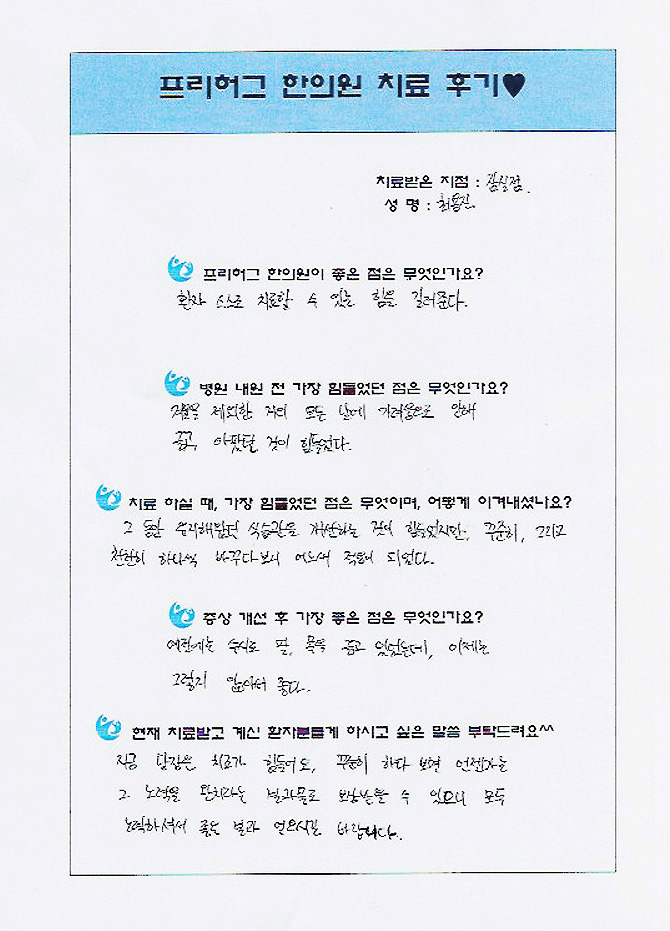 프리허그 한의원 치료 후기♥
치료받은 지점 : 잠실점.
성 명 : 최용진.
프리허그 한의원이 좋은 점은 무엇인가요?
환자 스스로 치료할 수 있는 힘을 길러준다.
병원 내원 전 가장 힘들었던 점은 무엇인가요?
제외한 거의 모든 날에 가려움으로 인해
긁고, 아팠던 것이 힘들었다.
치료 하실 때, 가장 힘들었던 점은 무엇이며, 어떻게 이겨내셨나요?
그 동안 유지해왔던 식습관을 개선하는 것이 힘들었지만, 꾸준히, 그리고
천천히 하나씩 바꾸다보니 어느새 적응이 되었다.
증상 개선 후 가장 좋은 점은 무엇인가요?
예전에는 수시로 팔, 목을 긁고 있었는데, 이제는
그렇지 않아서 좋다.
현재 치료받고 계신 환자분들께 하시고 싶은 말씀 부탁드려요^^
지금 당장은 치료가 힘들어도, 꾸준히 하다 보면 언젠가는
그 노력을 완치라는 결과물로 보상받을 수 있으니 모두
노력하셔서 좋은 결과 얻으시길 바랍니다.